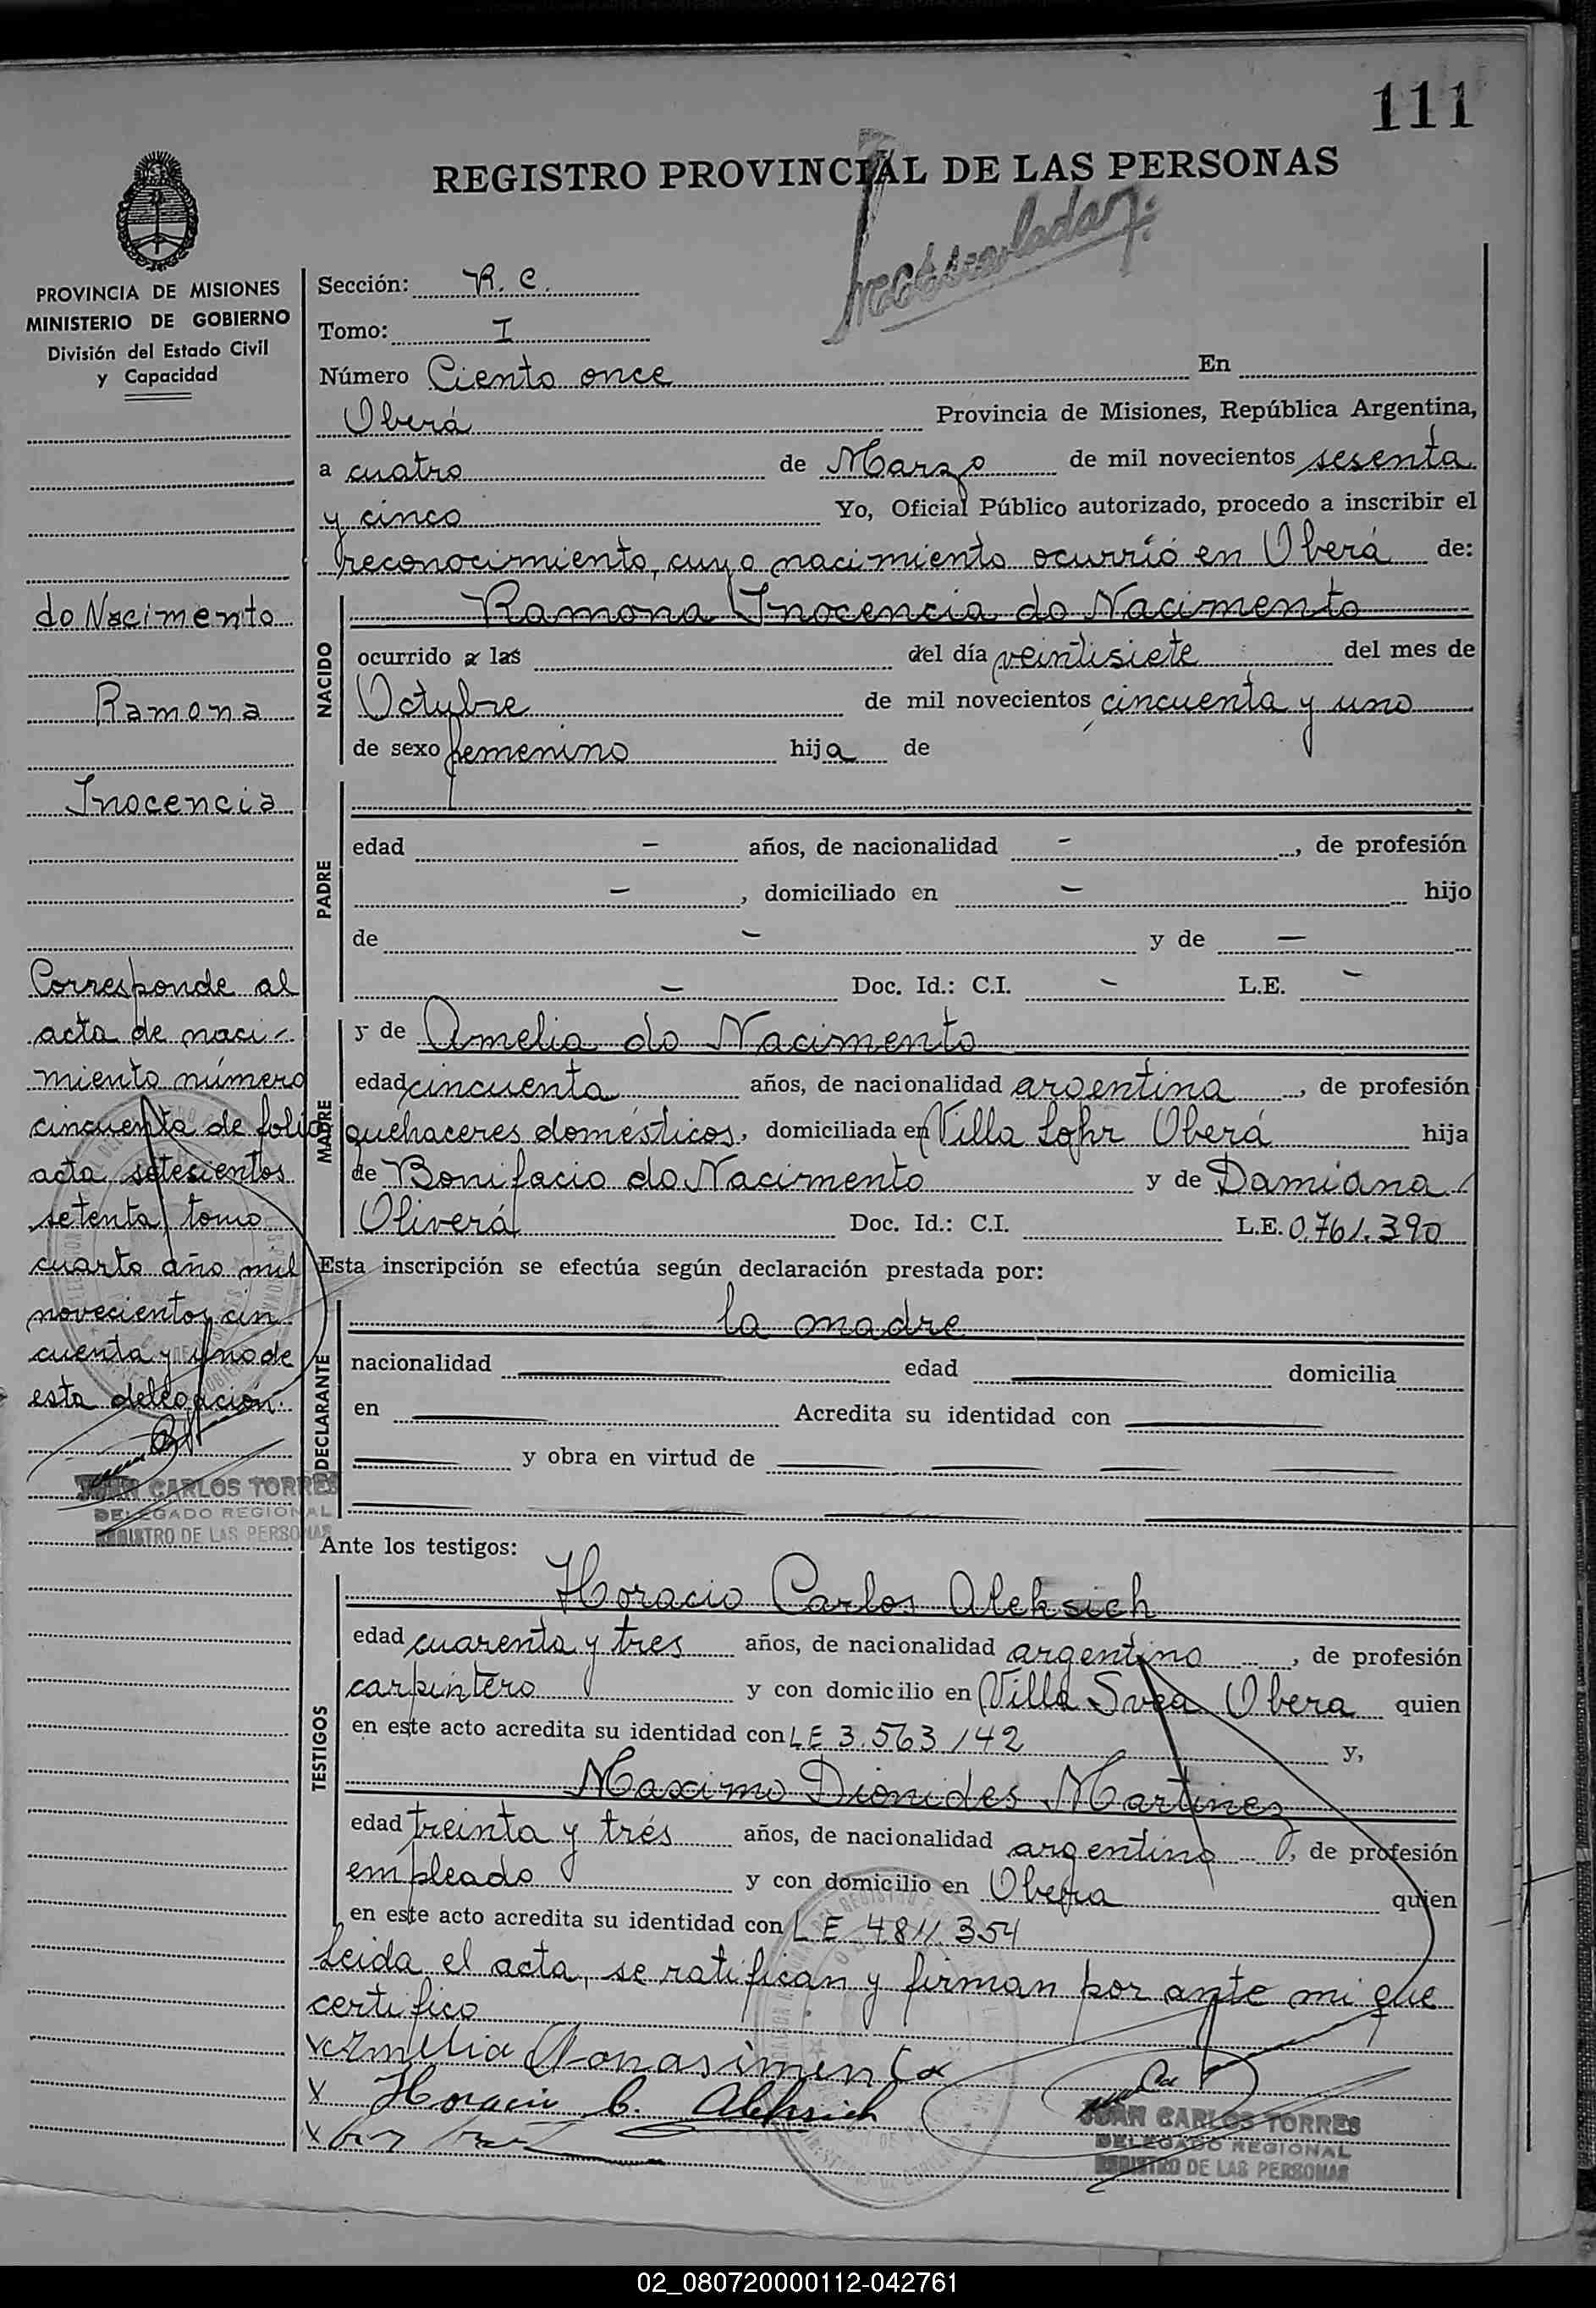 111
REGISTRO PROVINCIAL DE LAS PERSONAS
PROVINCIA DE MISIONES
MINISTERIO DE GOBIERNO
División del Estado Civil
y Capacidad
do Nacimento
Ramona
Inocencia
Corresponde al
acta de naci-
miento número
cincuenta de folio
acta setecientos
setenta, tomo
cuarto año mil
novecientos cin
cuenta y uno de
esta delegación.
JUAN CARLOS TORRES
DELEGADO REGIONAL
REGISTRO DE LAS PERSONAS
Sección: R. C.
Tomo: I
Número Ciento once En
Oberá Provincia de Misiones, República Argentina,
a cuatro de Marzo de mil novecientos sesenta
y cinco Yo, Oficial Público autorizado, procedo a inscribir el
reconocimiento, cuyo nacimiento ocurrió en Oberá de:
NACIDO
Ramona Inocencia do Nacimento
ocurrido a las del día veintisiete del mes de
Octubre de mil novecientos cincuenta y uno
de sexo femenino hija de
PADRE
edad - años, de nacionalidad - , de profesión
- , domiciliado en - hijo
de - y de -
- Doc. Id.: C.I. - L.E. -
MADRE
y de Amelia do Nacimento
edad cincuenta años, de nacionalidad argentina , de profesión
quehaceres domésticos, domiciliada en Villa Lohr Oberá hija
de Bonifacio do Nacimento y de Damiana
Oliverá Doc. Id.: C.I. L.E. 0.761.390
Esta inscripción se efectúa según declaración prestada por:
DECLARANTE
la madre
nacionalidad edad domicilia
en Acredita su identidad con
y obra en virtud de
Ante los testigos:
TESTIGOS
Horacio Carlos Aleksich
edad cuarenta y tres años, de nacionalidad argentino , de profesión
carpintero y con domicilio en Villa Svea Obera quien
en este acto acredita su identidad con LE 3.563142 y,
Maximo Dionides Martinez
edad treinta y trés años, de nacionalidad argentino , de profesión
empleado y con domicilio en Obera quien
en este acto acredita su identidad con LE 4811.354
Leida el acta, se ratifican y firman por ante mi que
certifico
x Amelia Donasimento
x Horacio C. Aleksich
x
JUAN CARLOS TORRES
DELEGADO REGIONAL
REGISTRO DE LAS PERSONAS
02_080720000112-042761